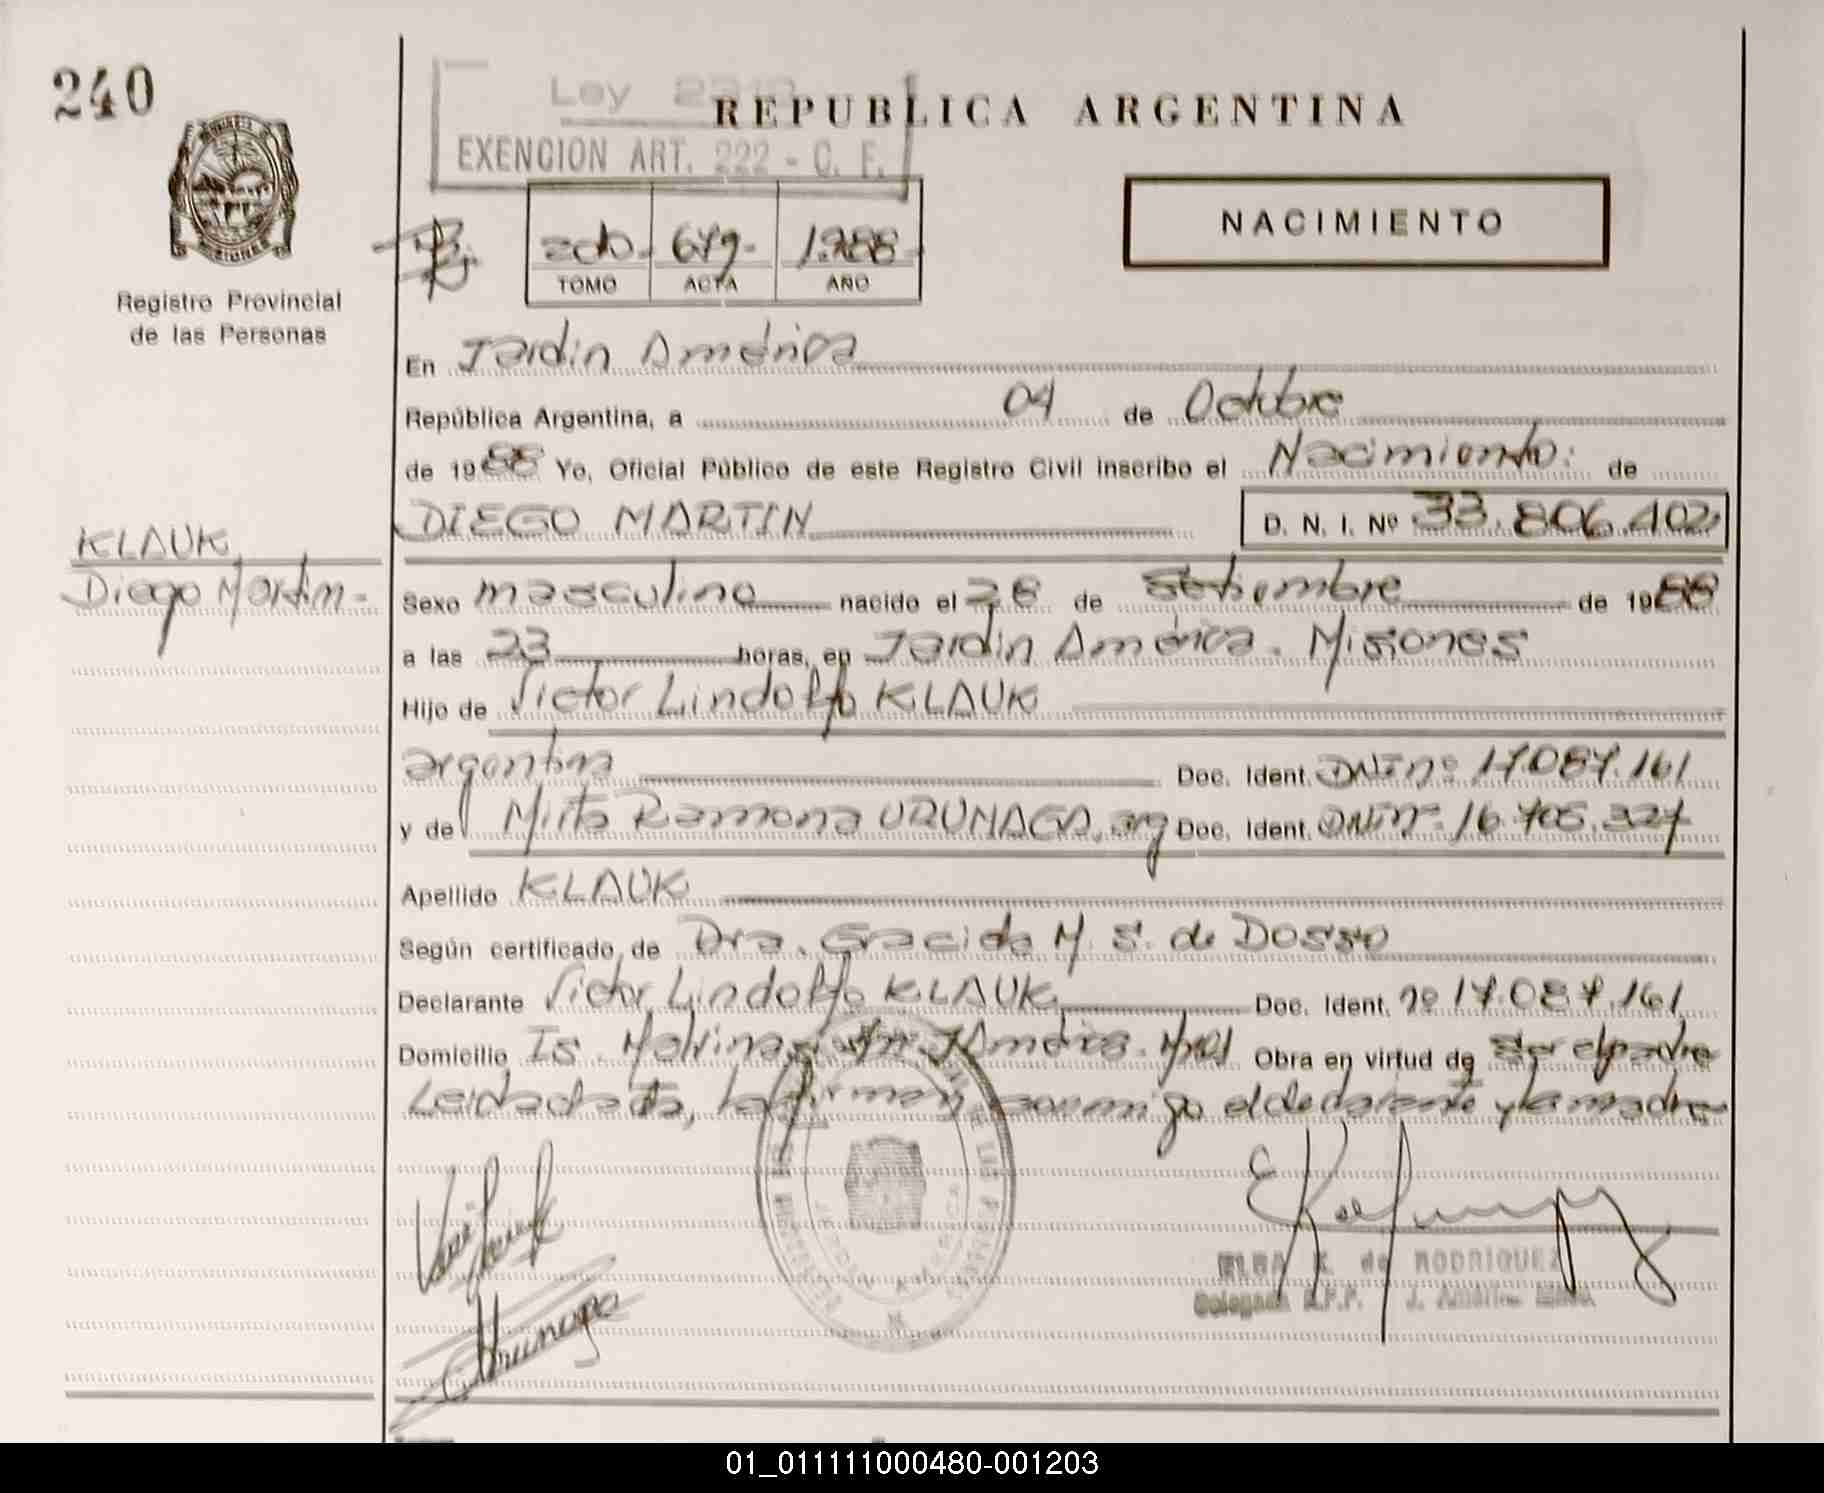 240
REPUBLICA ARGENTINA
EXENCION ART. 222 - C. F.
NACIMIENTO
2do - 679 - 1.988
TOMO ACTA AÑO
Registro Provincial
de las Personas
En Jardín América
República Argentina, a 04 de Octubre
de 1988 Yo, Oficial Público de este Registro Civil inscribo el Nacimiento: de
DIEGO MARTIN D. N. I. Nº 33.806.402
KLAUK
Diego Martin -
Sexo masculino nacido el 28 de Setiembre de 1988
a las 23 horas, en Jardín América. Misiones
Hijo de Victor Lindolfo KLAUK
argentina Doc. Ident. DNI nº 17.087.161
y de Mirta Ramona URUNAGA, arg Doc. Ident. DNI nº 16.705.327
Apellido KLAUK
Según certificado de Dra. Graciela M. S. de Dosso
Declarante Victor Lindolfo KLAUK Doc. Ident. nº 17.087.161
Domicilio Is. Malvinas J. América. Obra en virtud de ser el padre
Leida el acta, la firman conmigo el declarante y la madre
ELBA K. de RODRIGUEZ
01_011111000480-001203